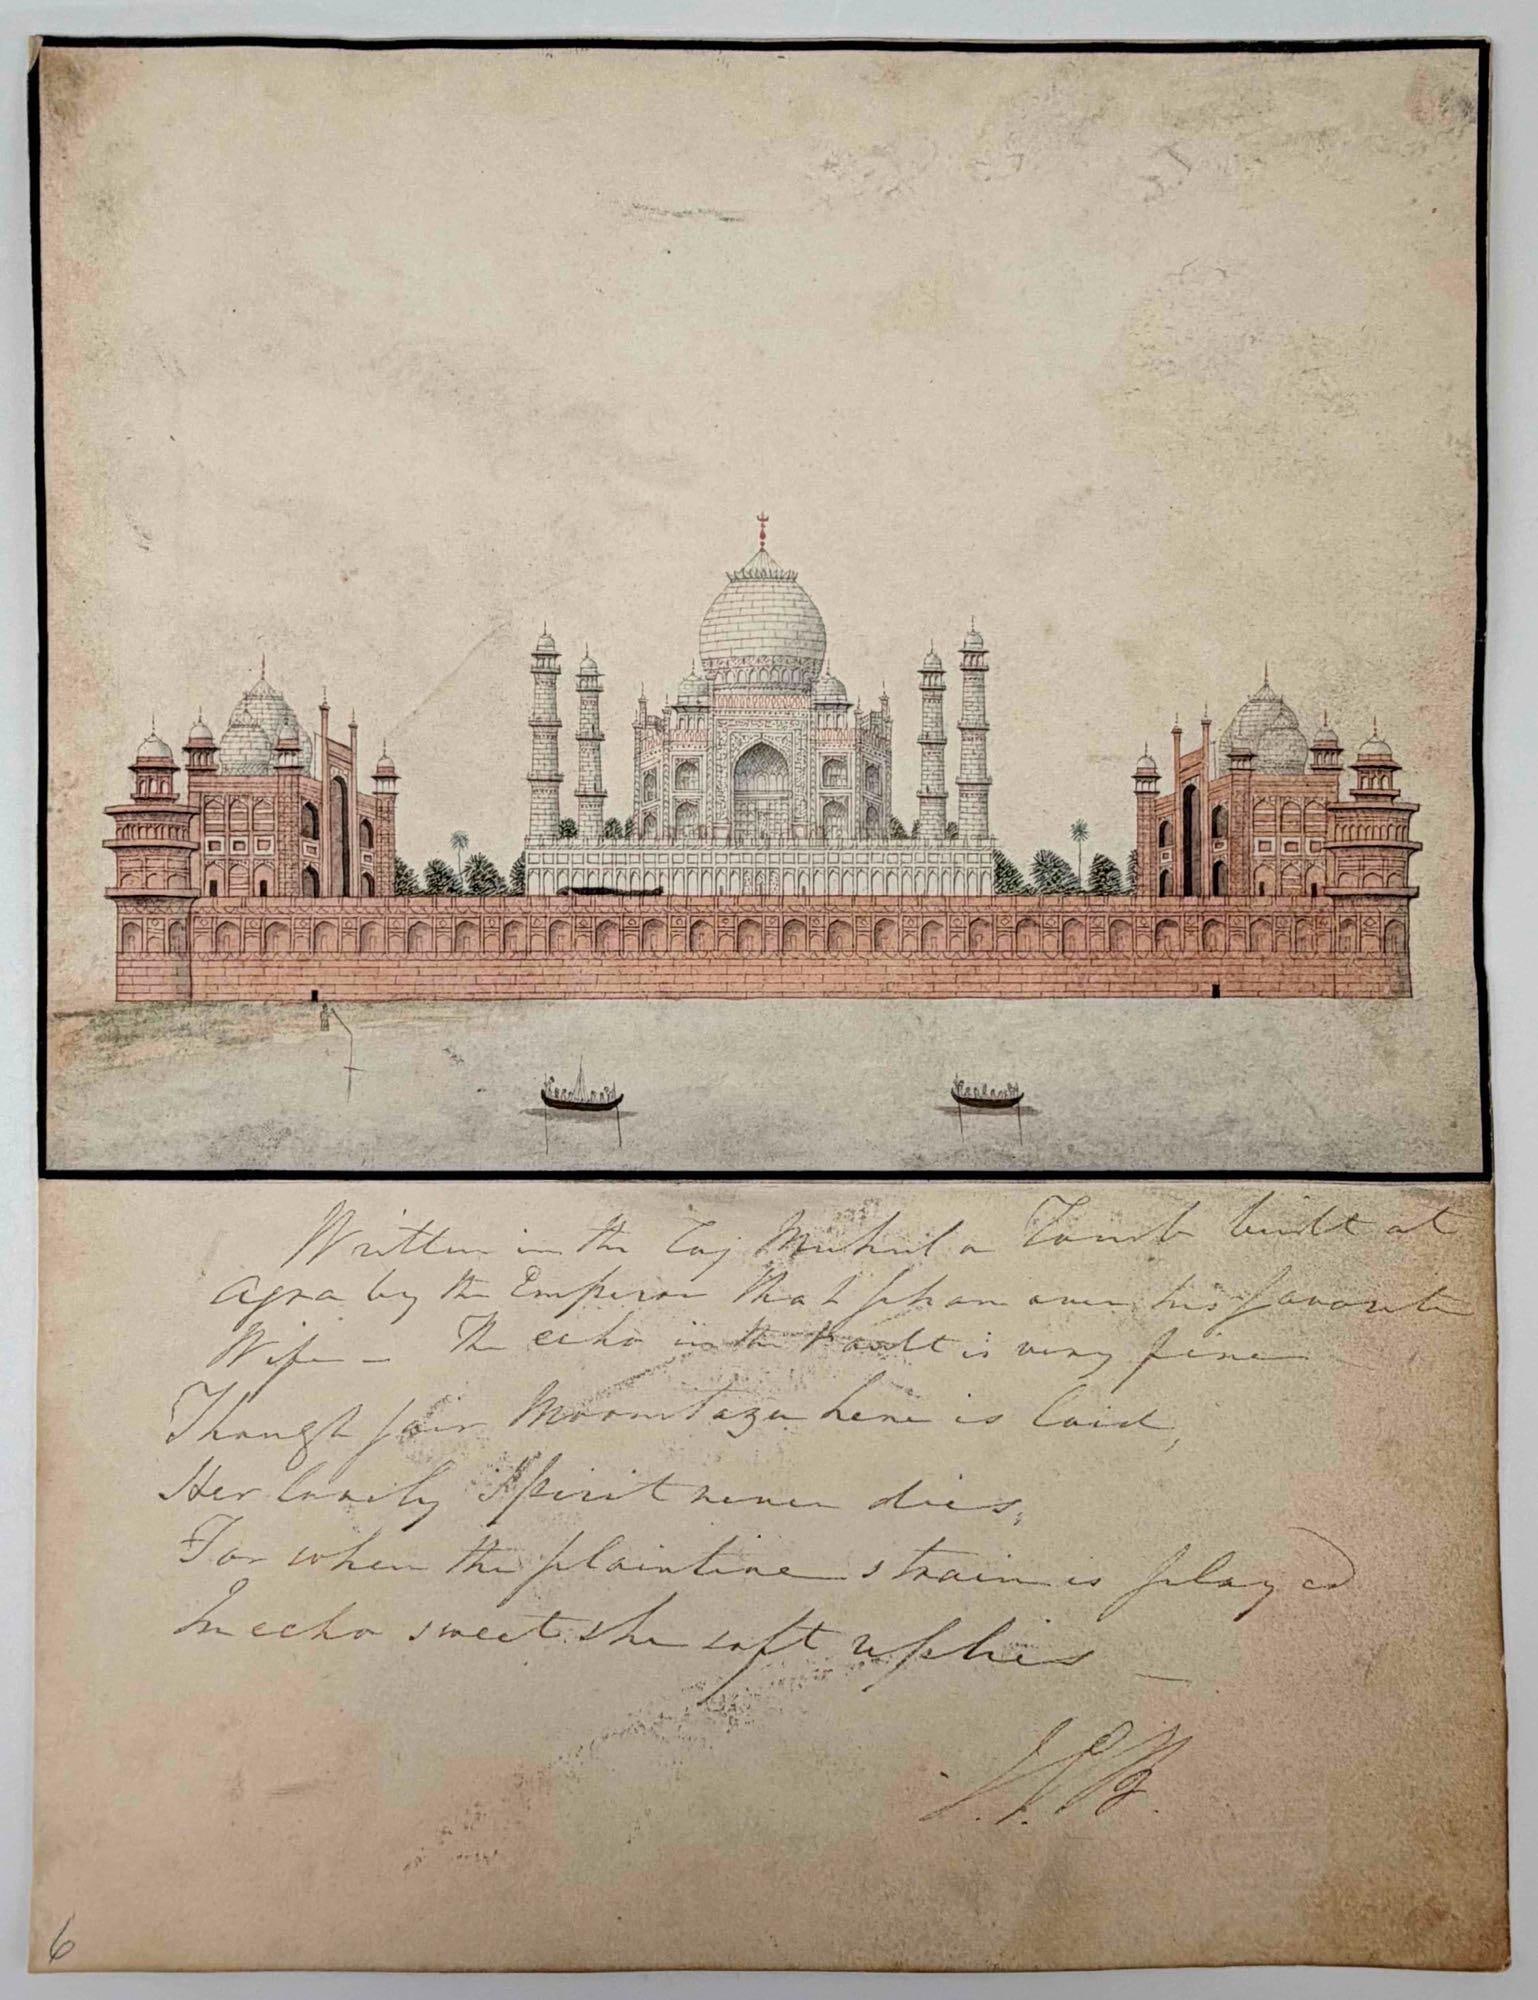 Written in the Taj Muhul a Tomb built at
Agra by the Emperor Shah Jehan over his favorite
Wife - The echo in the Vault is very fine
Though fair Moomtaza here is laid,
Her lovely Spirit never dies,
For when the plaintive strain is played
In echo sweet she soft replies -
6